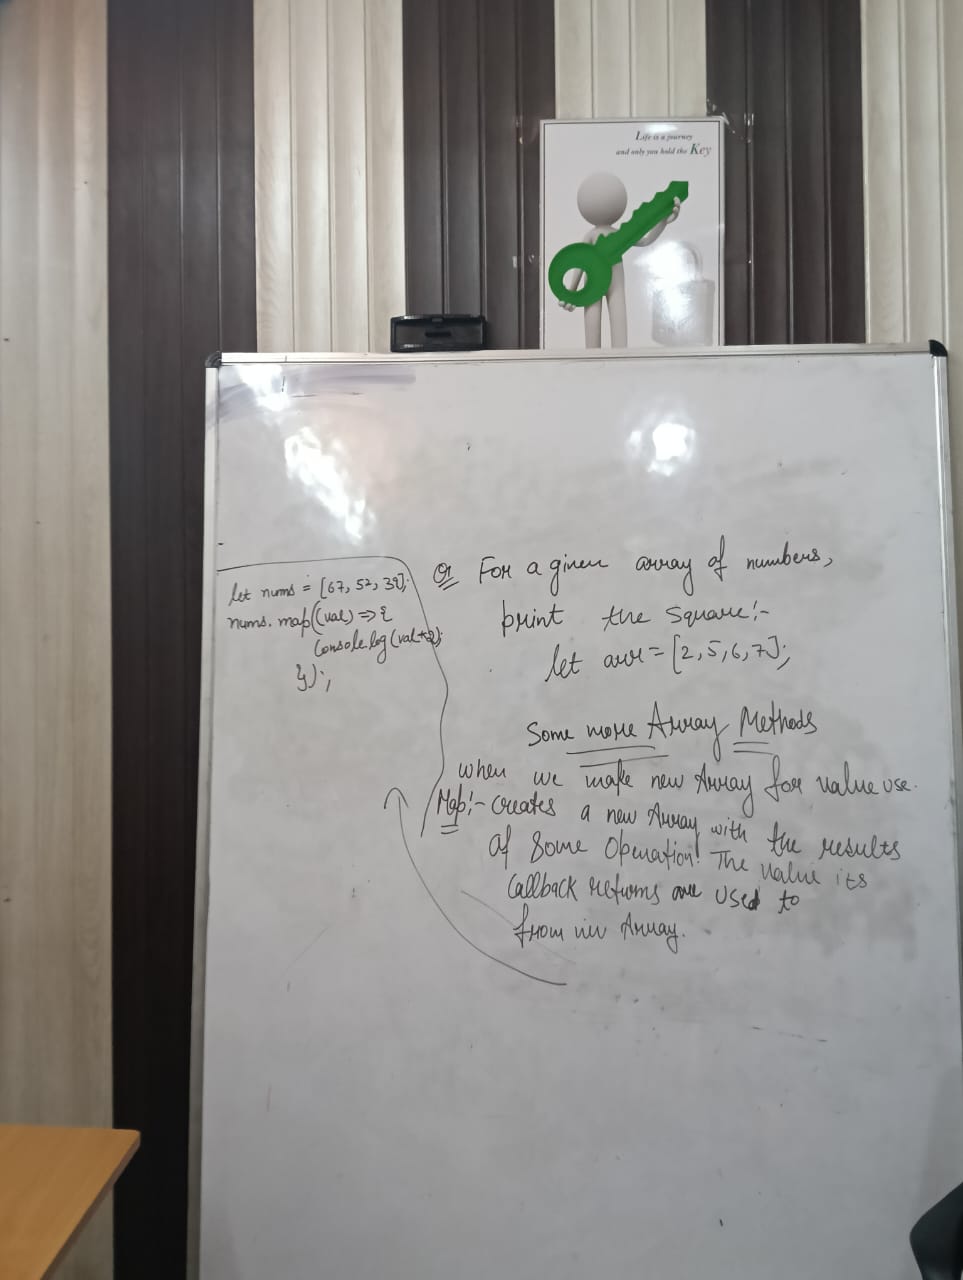 Life is a journey
and only you hold the Key
let nums = [67, 52, 39];
nums.map((val) => {
console.log(val*2);
});
Q For a given array of numbers,
print the square:-
let arr = [2,5,6,7];
Some more Array Methods
when we make new Array for value use.
Map:- creates a new Array with the results
of some operation. The value its
callback returns are used to
from new Array.